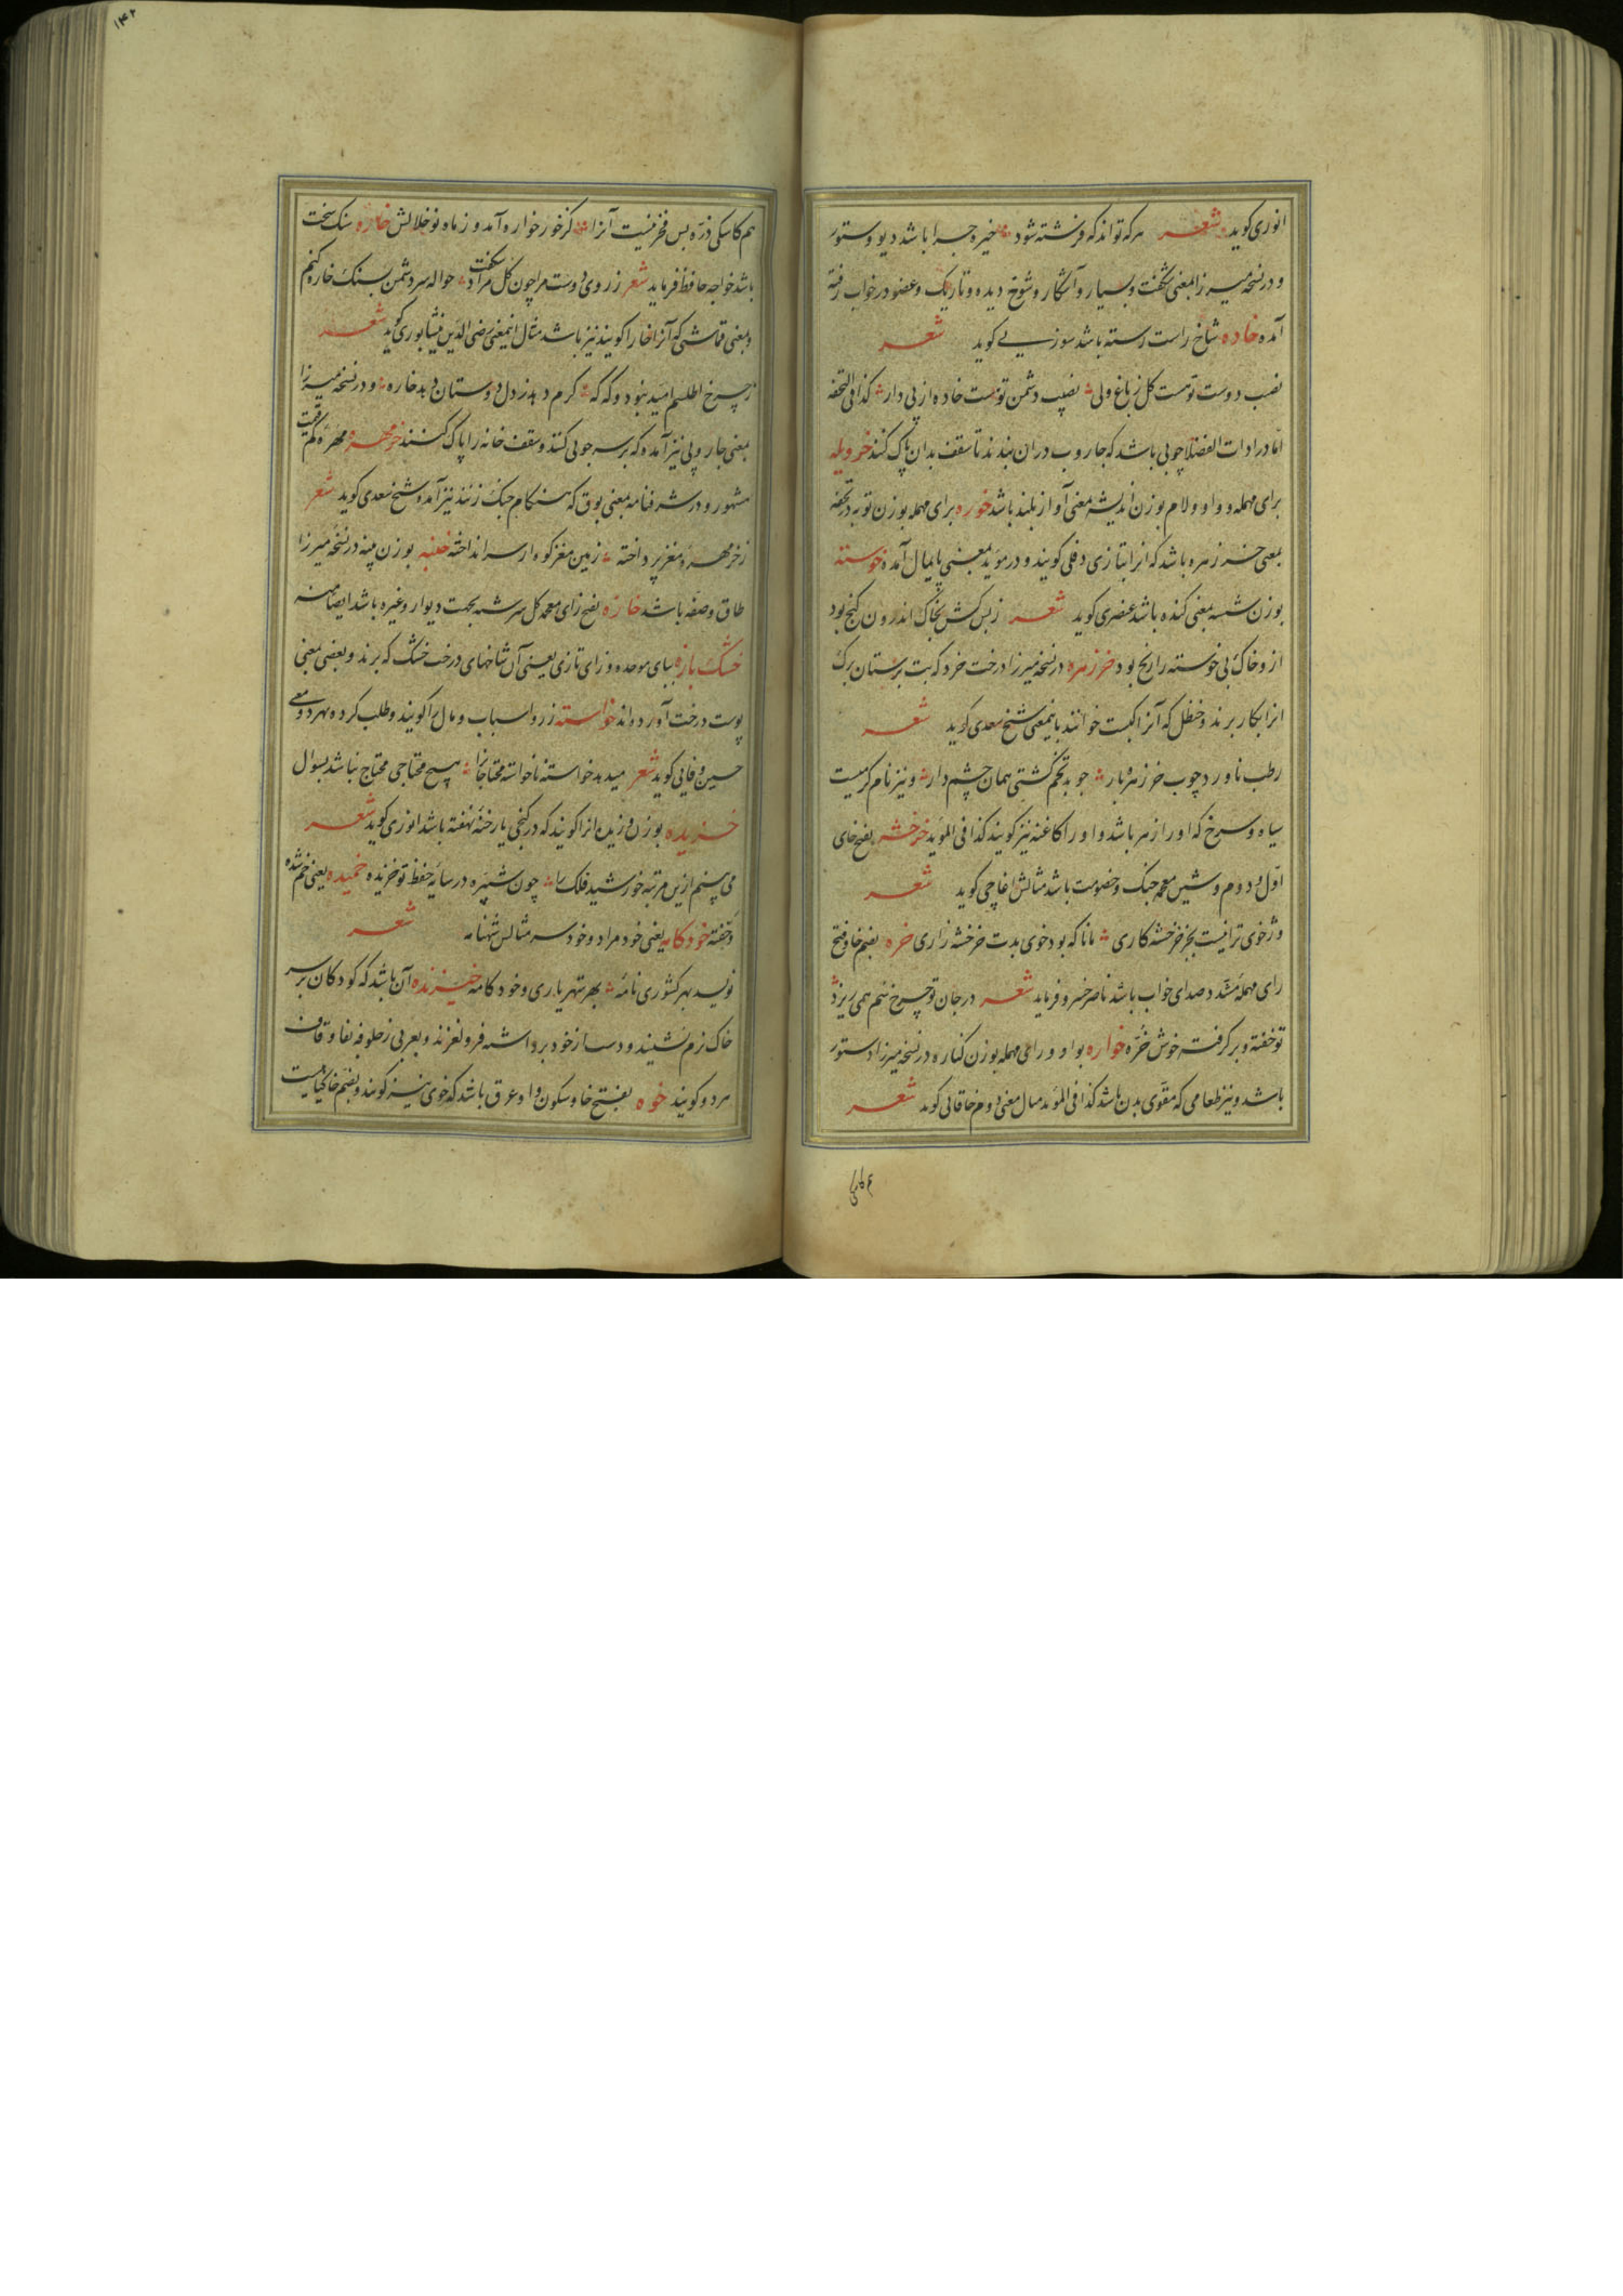 انوری کوید شعر هرکه تواند که فرشته شود خیره چرا باشد دیو و ستور
و در نسخه میرزا بمعنی شکفت و بسیار و آشکار و شوخ دیده و تاریک و عضو در خواب رفته
آمده خاده شاخ راست رسته باشد سوزنی کوید شعر
نصب دوست تو هست کل ز باغ ولی نصیب دشمن تو هست خاده از پی دار کذا فی التحفه
امّا در ادات الفضلا چوبی باشد که جاروب در ان بندند تا سقف بدان پاک کنند خرویله
برای مهمله و واو و لام بوزن اندیشه بمعنی آواز بلند باشد خوره برای مهمله بوزن توبه در تحفه
بمعنی خرزهره باشد که انرا بتازی دفلی کویند و در موید بمعنی پایمال آمده خوسته
بوزن شسته بمعنی کنده باشد عنصری کوید شعر ز بس کش بخاک اندرون کنج بود
ازو خاک پی خوسته را رنج بود خرزهره در نسخه میرزا درخت خرد که بت پرستان برک
انرا بکار برند و حنظل که آنرا کبست خوانند باینمعنی شیخ سعدی کوید شعر
رطب ناورد چوب خرزهره بار چو بد تخم کشتی همان چشم دار و نیز نام کرمیست
سیاه و سرخ که او را زهر باشد و او را کاغنه نیز کویند کذا فی المؤید خرخشه بفتح خای
اول و دوم و شین معجمه جنک و خصومت باشد مثالش اغاچی کوید شعر
وز خوی ترا نیست بجز خرخشه کاری مانا که بود خوی بدت خرخشه زاری خره بضم خا و فتح
رای مهمله مشدد صدای خواب باشد ناصر خسرو فرماید شعر در جان تو چرخ نیم همی ریزد
تو خفته و برکرفته خوش خرّه خواره بواو و رای مهمله بوزن کناره در نسخه میرزا دستور
باشد و نیز طعامی که مقوی بدن باشد کذا فی المؤید مثال معنی دوم خاقانی کوید شعر
هم کاسکی
۱۴۲
هم کاسکی ذره بس فخر نیست آنرا کز خور خواره آمد وز ماه نو خلالش خاره سنک سخت
باشد خواجه حافظ فرماید شعر ز روی دوست مرا چون کل مراد شکفت حواله سر دشمن بسنک خاره کنم
و بمعنی قماشی که آنرا خارا کویند نیز باشد مثال اینمعنی رضی الدین نیشابوری کوید شعر
ز چرخ اطلسم امید بود و که که کرم دهد ز دل دوستان دهد خاره و در نسخه میرزا
بمعنی جاروبی نیز آمده که بر سر چوبی کنند و سقف خانه را پاک کنند خرمهره مهرهٔ کم قیمت
مشهور و در شرفنامه بمعنی بوق که هنکام جنک زنند نیز آمده شیخ سعدی کوید شعر
ز خرمهره مغز پرداخته زمین مغز کوه از سر انداخته خنبه بوزن پنبه در نسخهٔ میرزا
طاق و صفه باشد خازه بفتح زای معجمه کل سرشته بجهت دیوار و غیره باشد ایضا منه
خشک بازه ببای موحده و زای تازی یعنی آن شاخهای درخت خشک که برند و بعضی بمعنی
پوست درخت آورده اند خواسته زر و اسباب و مال را کویند و طلب کرده و بهر دو معنی
حسین وفایی کوید شعر میدهد خواسته ناخواسته محتاجانرا هیچ محتاجی محتاج نباشد بسوال
خزیده بوزن وزیده انرا کویند که در کنجی یا رخنهٔ نهفته باشد انوری کوید شعر
می بینم ازین مرتبه خورشید فلک را چون شب‌پره در سایهٔ حفظ تو خزیده خمیده یعنی خم شده
و خفته خودکامه یعنی خود مراد و خودسر مثالش شهنامه شعر
نویسد بهر کشوری نامهٔ بهر شهریاری و خودکامه خیزنده آن باشد که کودکان بر سر
خاک نرم نشینند و دست از خود برداشته فرو لغزند و بعربی زحلوفه بفا و قاف
هر دو کویند خوه بفتح خا و سکون واو عرق باشد که خوی نیز کویند و بضم خا کیاهیست